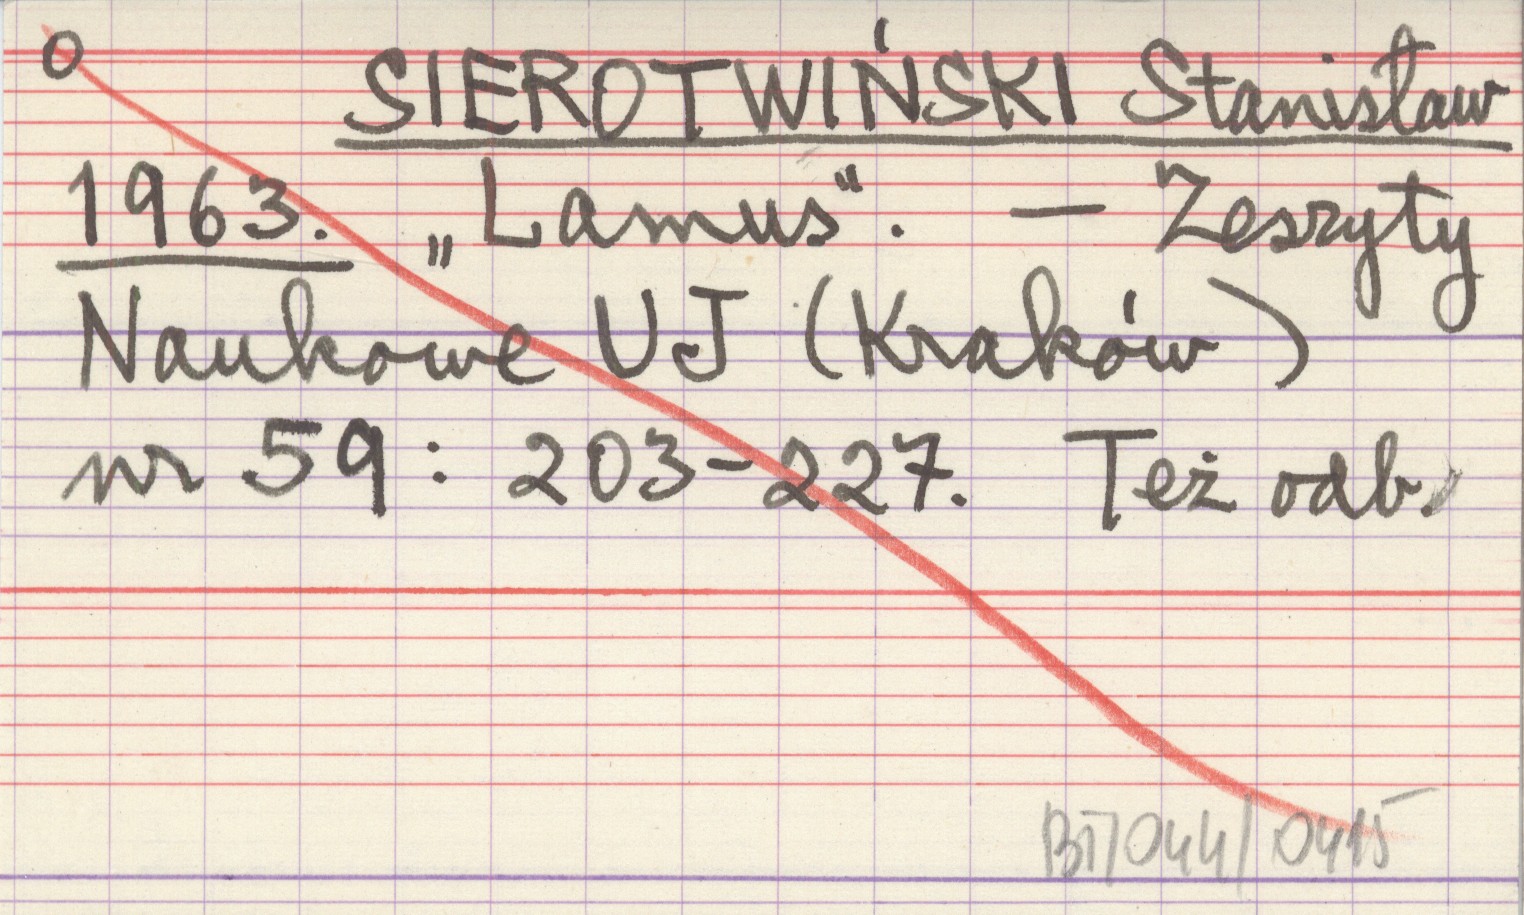 O SIEROTWIŃSKI Stanisław
1963. „Lamus". — Zeszyty
Naukowe UJ (Kraków)
nr 59: 203-227. Też odb.
BT/044/0415